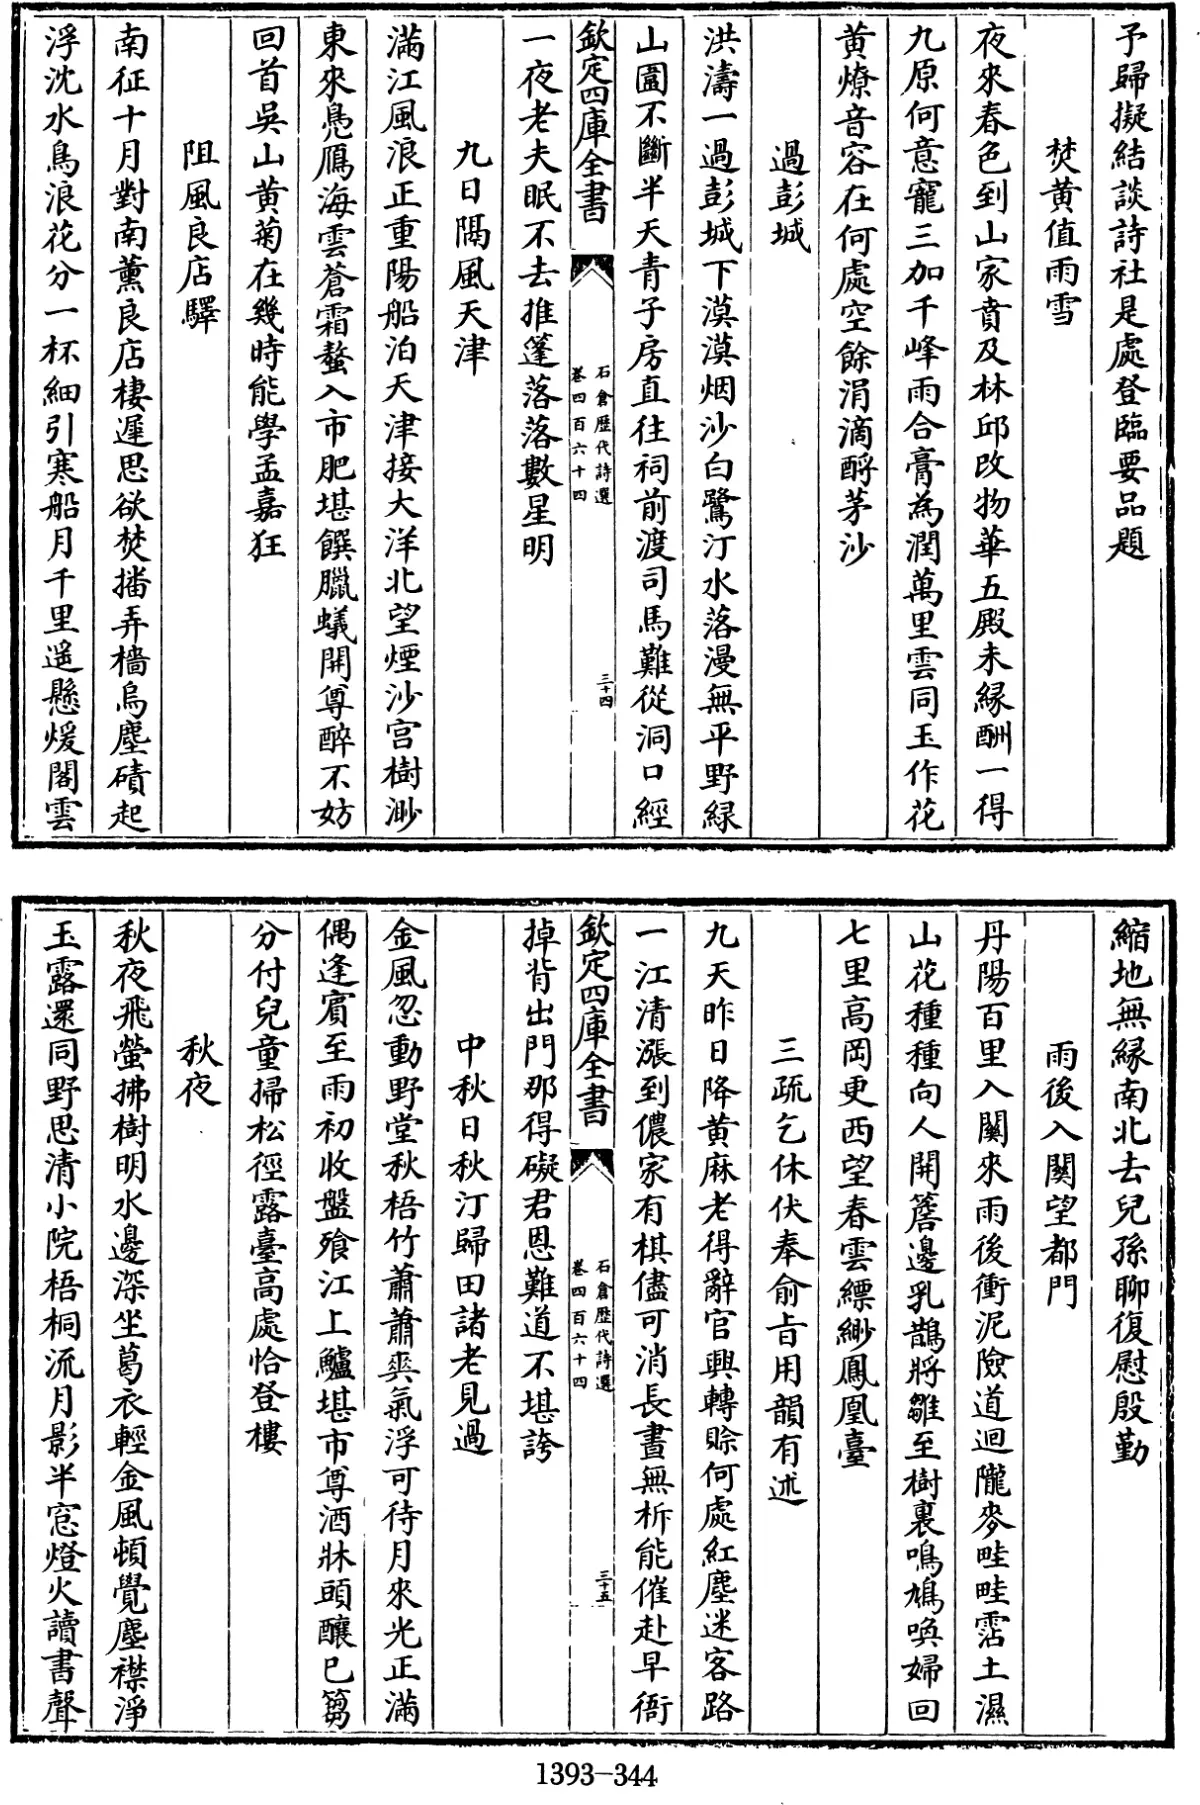 予歸擬結談詩社是處登臨要品題
焚黄值雨雪
夜來春色到山家賁及林邱改物華五殿未縁酬一得
九原何意寵三加千峰雨合膏為潤萬里雲同玉作花
黄燎音容在何處空餘涓滴酹茅沙
過彭城
洪濤一過彭城下漠漠烟沙白鷺汀水落漫無平野緑
山圍不斷半天青子房直往祠前渡司馬難從洞口經
欽定四庫全書
石倉歴代詩選
卷四百六十四
三十四
一夜老夫眠不去推篷落落數星明
九日阻風天津
滿江風浪正重陽船泊天津接大洋北望煙沙宫樹渺
東來鳧鴈海雲蒼霜螯入市肥堪饌臘蟻開尊醉不妨
回首吳山黄菊在幾時能學孟嘉狂
阻風良店驛
南征十月對南薰良店棲遲思欲焚播弄檣烏塵磧起
浮沈水鳥浪花分一杯細引寒船月千里遥懸煖閣雲
縮地無縁南北去兒孫聊復慰殷勤
雨後入關望都門
丹陽百里入關來雨後衝泥險道迴隴麥畦畦霑土濕
山花種種向人開簷邊乳鵲將雛至樹裏鳴鳩喚婦回
七里高岡更西望春雲縹緲鳳凰臺
三疏乞休伏奉俞旨用韻有述
九天昨日降黄麻老得辭官興轉賒何處紅塵迷客路
一江清漲到儂家有棋儘可消長晝無柝能催赴早衙
欽定四庫全書
石倉歴代詩選
卷四百六十四
三十五
掉背出門那得礙君恩難道不堪誇
中秋日秋汀歸田諸老見過
金風忽動野堂秋梧竹蕭蕭爽氣浮可待月來光正滿
偶逢賓至雨初收盤飱江上鱸堪市尊酒牀頭釀已篘
分付兒童掃松徑露臺高處恰登樓
秋夜
秋夜飛螢拂樹明水邊深坐葛衣輕金風頓覺塵襟淨
玉露還同野思清小院梧桐流月影半窓燈火讀書聲
1393-344